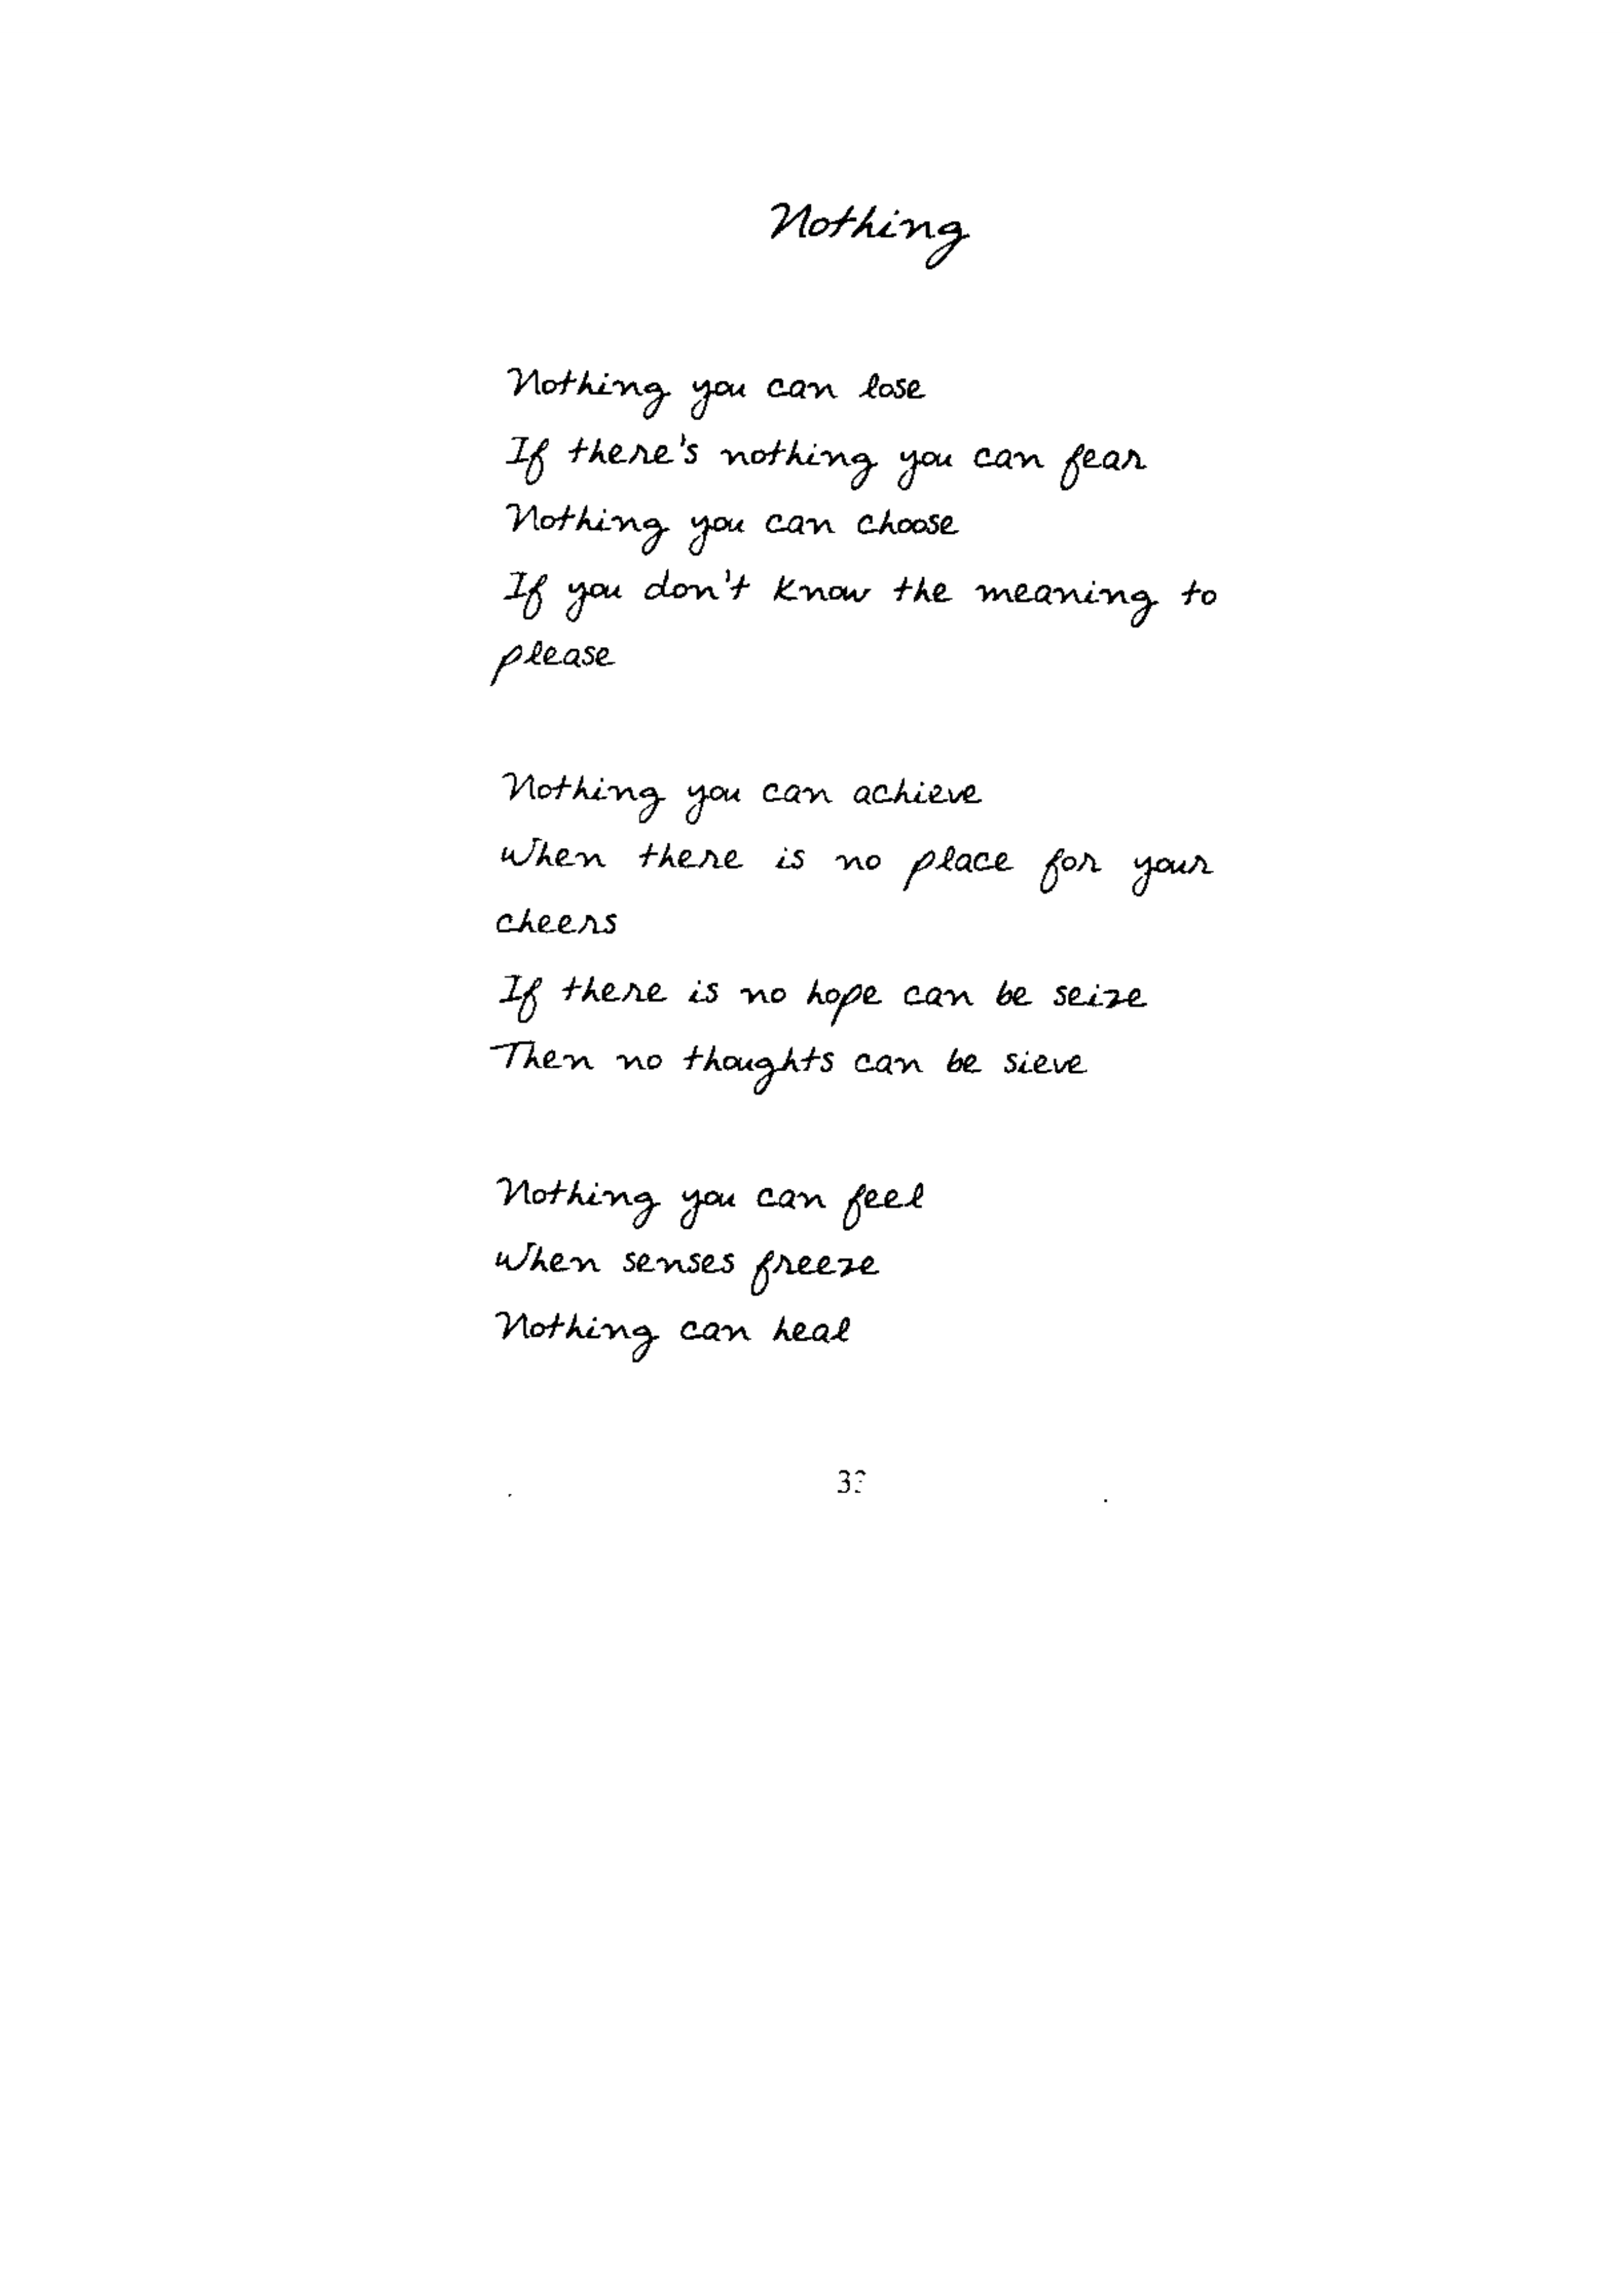 Nothing
Nothing you can lose
If there's nothing you can fear
Nothing you can choose
If you don't know the meaning to
please
Nothing you can achieve
When there is no place for your
cheers
If there is no hope can be seize
Then no thoughts can be sieve
Nothing you can feel
When senses freeze
Nothing can heal
33